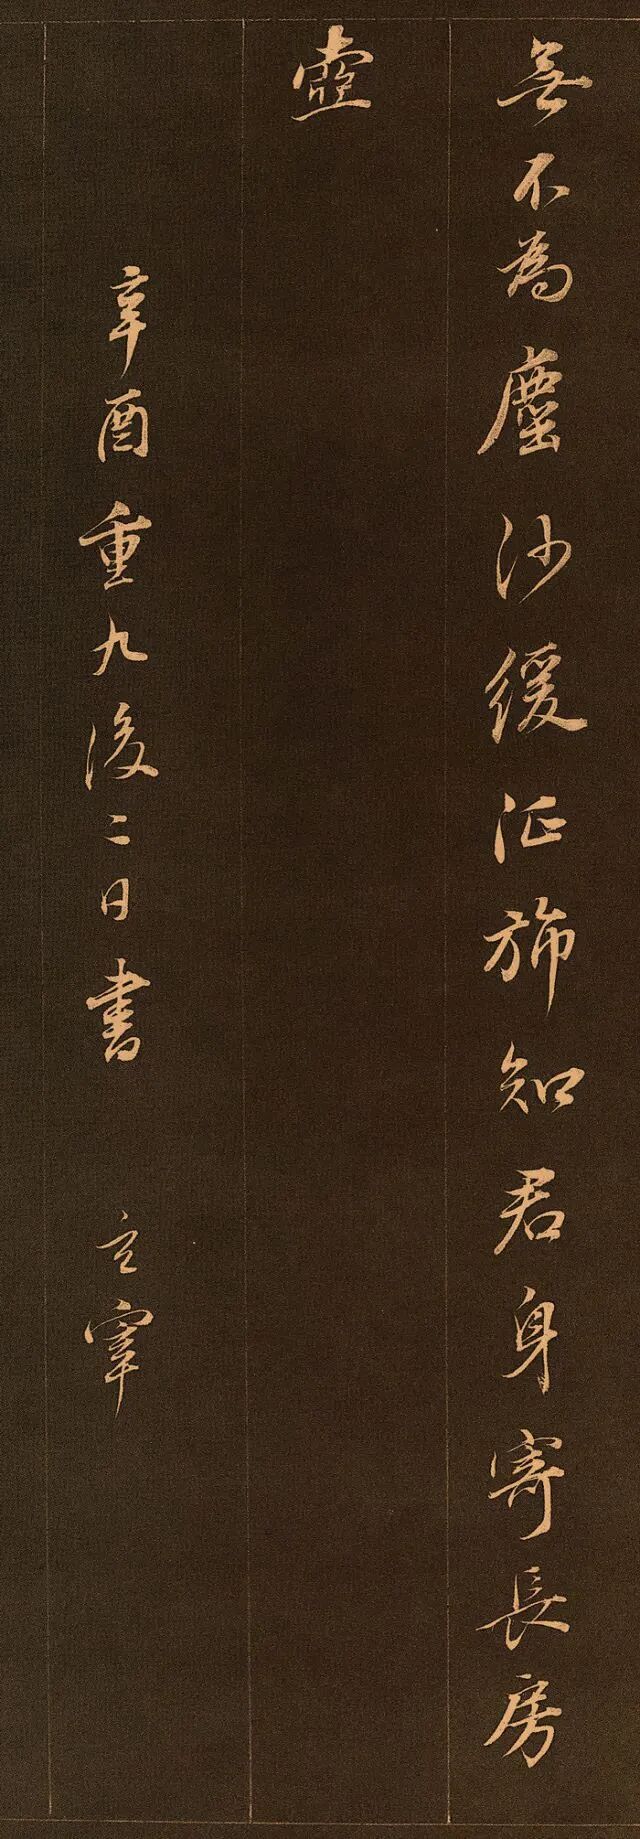 無不為塵沙緩征旆知君身寄長房
壺
辛酉重九後二日書 玄宰